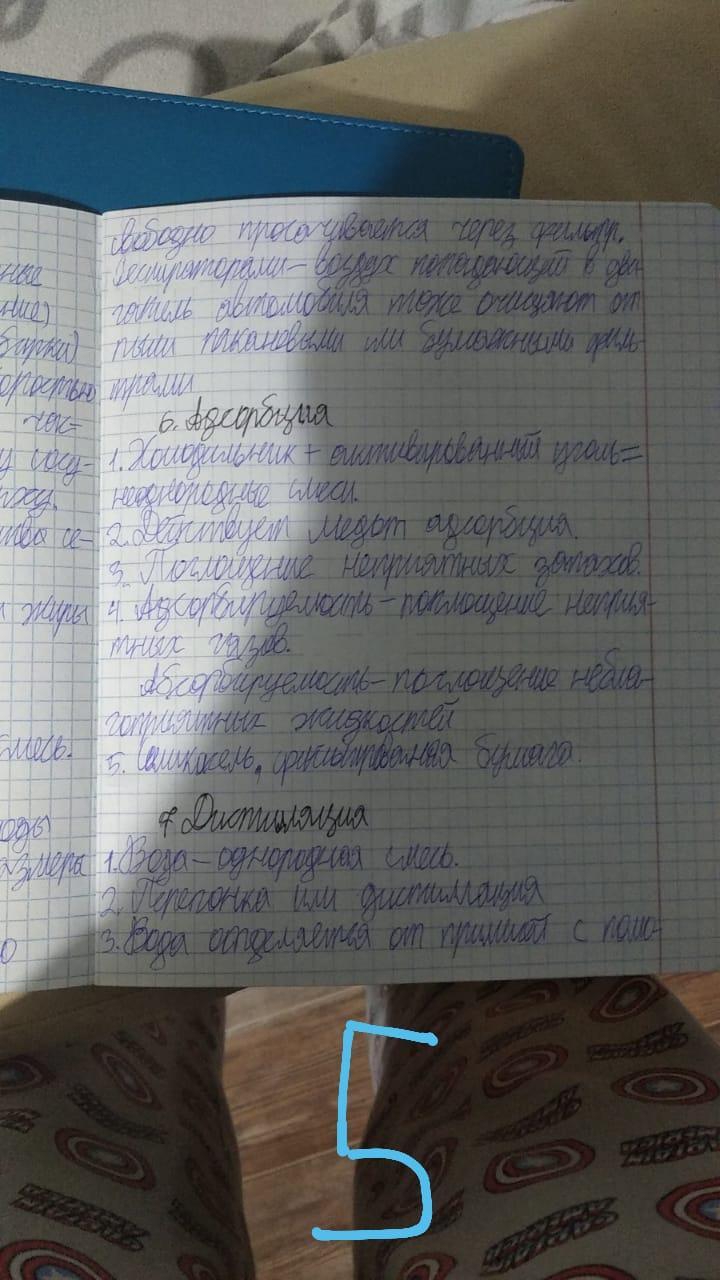 свободно просачивается через фильтр.
Респираторами – воздух попадающий в дви-
гатель автомобиля тоже очищают от
пыли тканевыми или бумажными филь-
трами
6. Адсорбция
1. Холодильник + активированный уголь =
неоднородные смеси.
2. Действует медот адсорбция.
3. Поглощение неприятных запахов.
4. Адсорбируемость – поглощение неприя-
тных газов.
Абсорбируемость – поглощение небла-
гоприятных жидкостей
5. Силикагель, фильтрованная бумага.
7 Дистилляция
1. Вода – однородная смесь.
2. Перегонка или дистилляция
3. Вода отделяется от примесей с помо-
ные
ние)
бирки)
оростью
у сосу-
тва се-
жиры
смесь.
оды
азмера
о
5